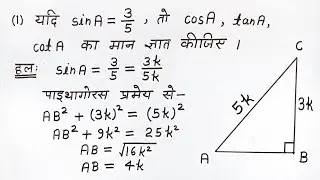 (1) यदि sinA = 3/5 , तो cosA, tanA,
cotA का मान ज्ञात कीजिए ।
हलः sinA = 3/5 = 3k/5k
पाइथागोरस प्रमेय से-
AB² + (3k)² = (5k)²
AB² + 9k² = 25k²
AB = √16k²
AB = 4k
C
5k
3k
A
B